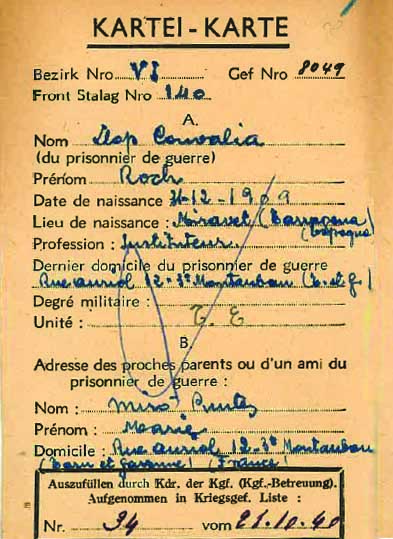 KARTEI - KARTE
Bezirk Nro VI Gef Nro 8049
Front Stalag Nro 140
A.
Nom Llop Convalia
(du prisonnier de guerre)
Prénom Roch
Date de naissance 31-12-1909
Lieu de naissance : Miravet (Tarragona)
(Espagne)
Profession : Instituteur
Dernier domicile du prisonnier de guerre
Rue auriol 12-3e Montauban (t. et g.)
Degré militaire :
Unité : T. E
B.
Adresse des proches parents ou d'un ami du
prisonnier de guerre :
Nom : Miró
Prénom : Marie
Domicile : Rue auriol 12-3e Montauban
(Tarn et garonne) (France)
Auszufüllen durch Kdr. der Kgf. (Kgf.-Betreuung).
Aufgenommen in Kriegsgef. Liste :
Nr. 34 vom 21.10.40